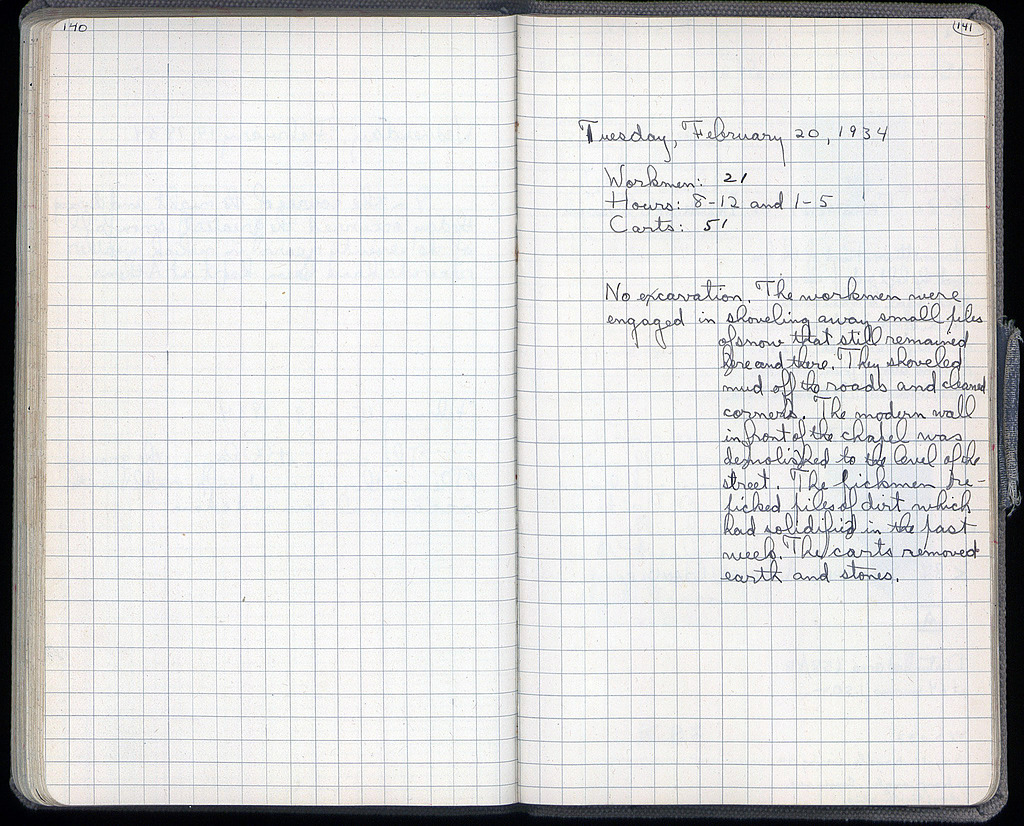 140
141
Tuesday, February 20, 1934
Workmen: 21
Hours: 8-12 and 1-5
Carts: 51
No excavation. The workmen were
engaged in shoveling away small piles
of snow that still remained
here and there. They shoveled
mud off the roads and cleaned
corners. The modern wall
in front of the chapel was
demolished to the level of the
street. The pickmen re-
picked piles of dirt which
had solidified in the past
week. The carts removed
earth and stones.